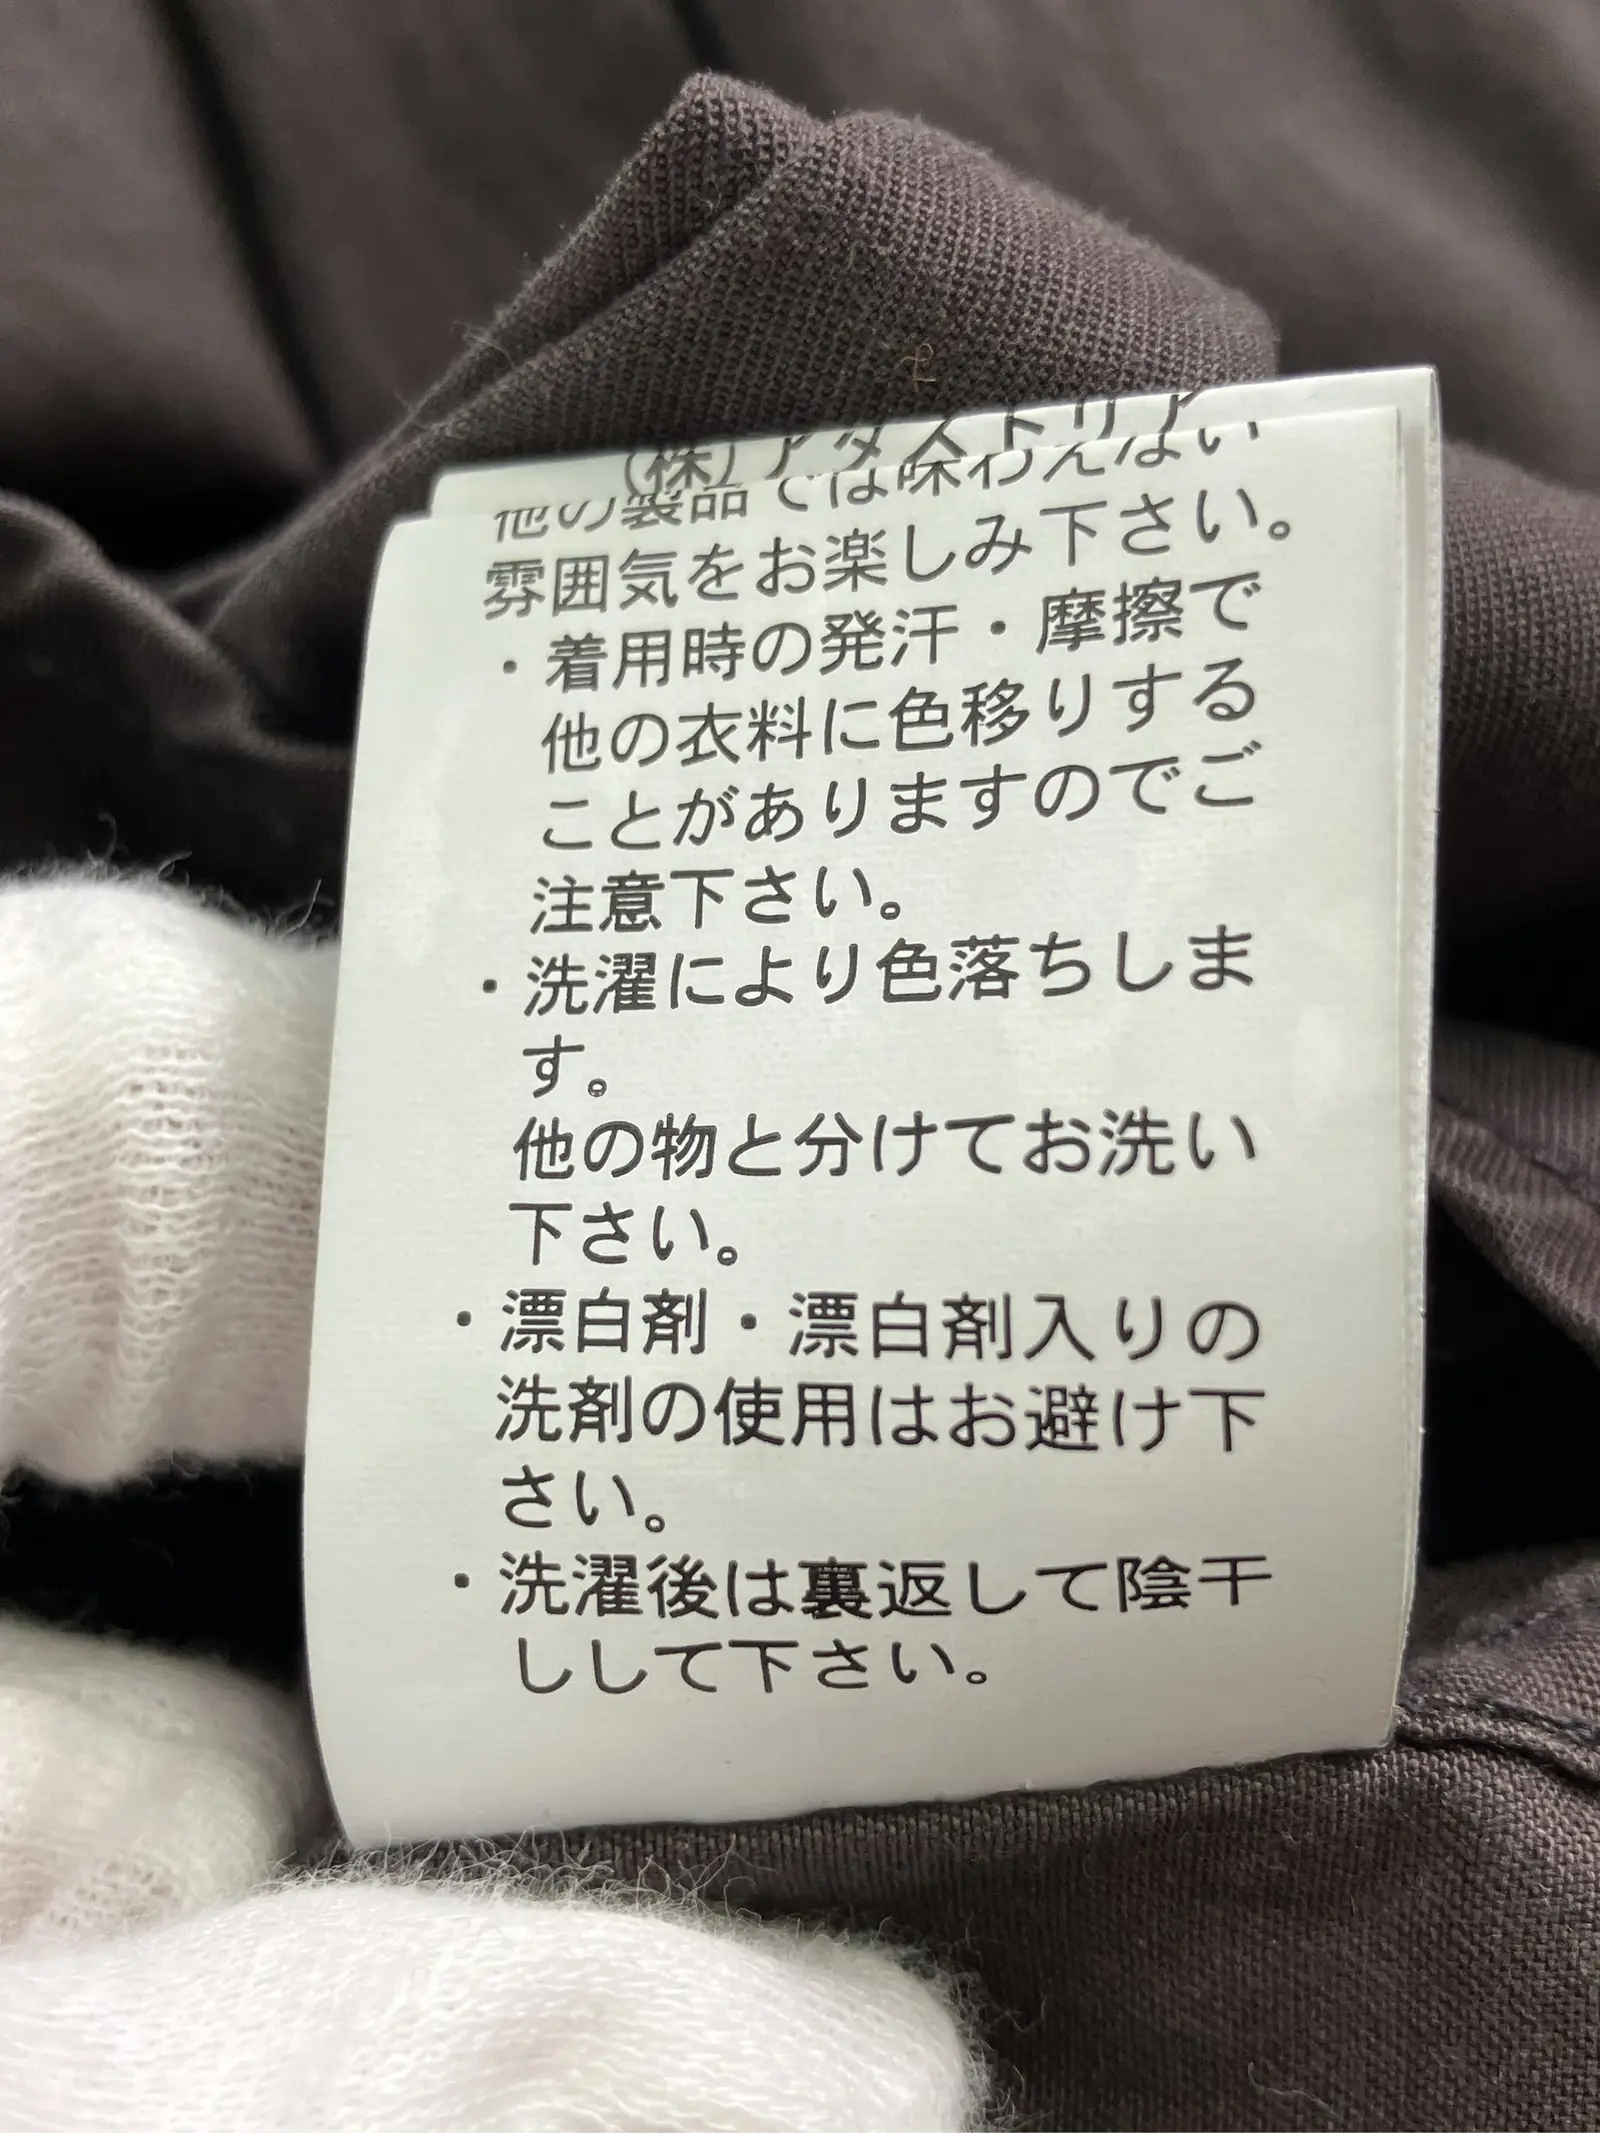 (株)アダストリア
他の製品では味わえない
雰囲気をお楽しみ下さい。
・着用時の発汗・摩擦で
他の衣料に色移りする
ことがありますのでご
注意下さい。
・洗濯により色落ちしま
す。
他の物と分けてお洗い
下さい。
・漂白剤・漂白剤入りの
洗剤の使用はお避け下
さい。
・洗濯後は裏返して陰干
ししして下さい。